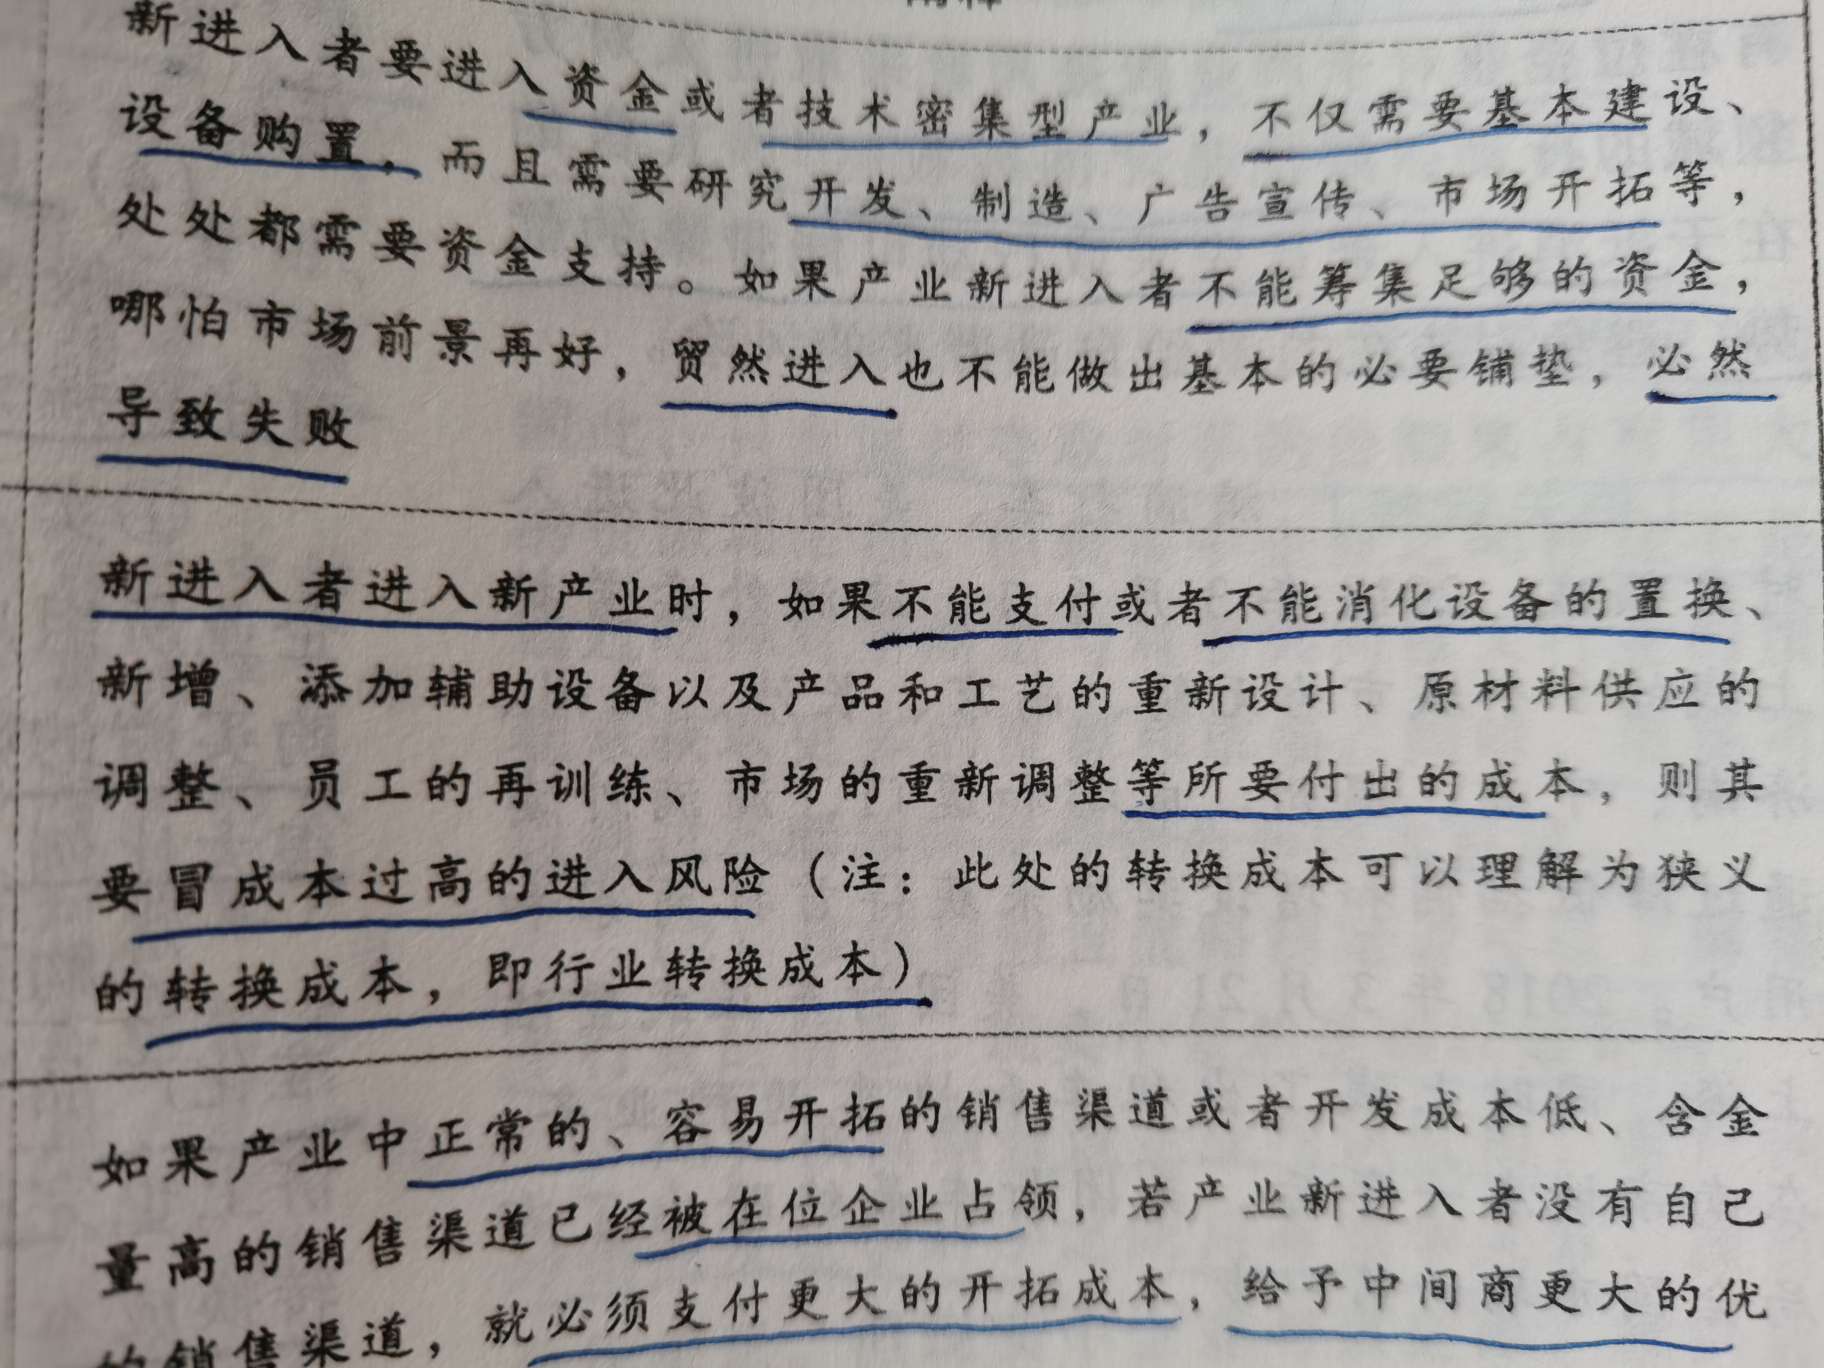 新进入者要进入资金或者技术密集型产业，不仅需要基本建设、
设备购置，而且需要研究开发、制造、广告宣传、市场开拓等，
处处都需要资金支持。如果产业新进入者不能筹集足够的资金，
哪怕市场前景再好，贸然进入也不能做出基本的必要铺垫，必然
导致失败
新进入者进入新产业时，如果不能支付或者不能消化设备的置换、
新增、添加辅助设备以及产品和工艺的重新设计、原材料供应的
调整、员工的再训练、市场的重新调整等所要付出的成本，则其
要冒成本过高的进入风险（注：此处的转换成本可以理解为狭义
的转换成本，即行业转换成本）
如果产业中正常的、容易开拓的销售渠道或者开发成本低、含金
量高的销售渠道已经被在位企业占领，若产业新进入者没有自己
的销售渠道，就必须支付更大的开拓成本，给予中间商更大的优